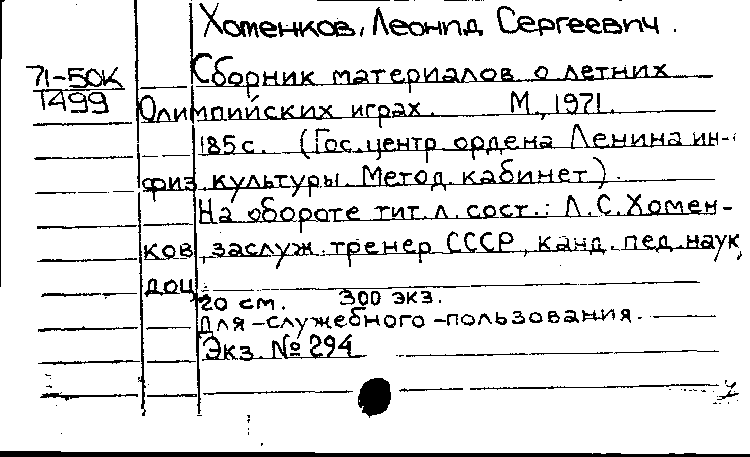 Хоменков, Леонид Сергеевич.
71-50К
1499
Сборник материалов о летних
Олимпийских играх. М., 1971.
185 с. (Гос. центр. ордена Ленина ин-
физ. культуры. Метод. кабинет).
На обороте тит. л. сост.: Л.С. Хомен-
ков, заслуж. тренер СССР, канд. пед. наук,
доц.
20 см. 300 экз.
Для-служебного-пользования.
Экз. № 294